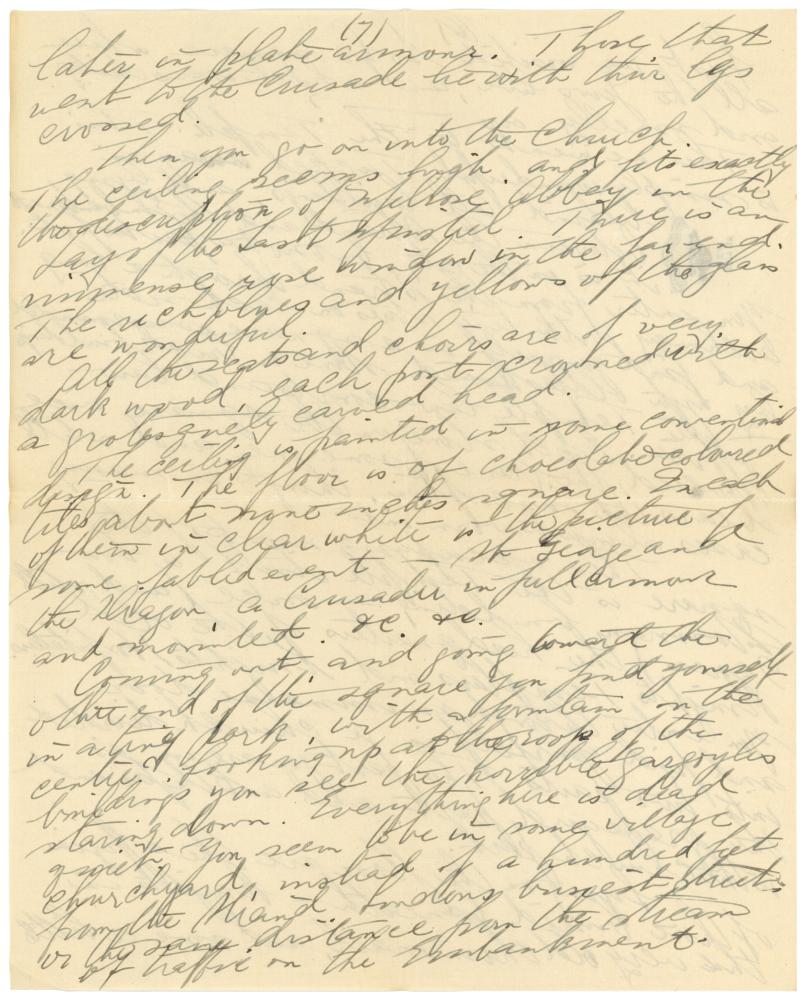 (7)
later in plate armour. Those that
went to the Crusade lie with their legs
crossed.
Then you go on into the Church.
The ceiling seems high and fits exactly
the description of Melrose Abbey in the
Lay of the Last Minstrel. There is an
immense rose window in the far end.
The rich blues and yellows of the glass
are wonderful.
All the seats and choirs are of very
dark wood, each post crowned with
a grotesquely carved head.
The ceiling is painted in some conventional
design. The floor is of chocolate coloured
tiles about nine inches square. In each
of them in clear white is the picture of
some fabled event — St George and
the Dragon, a Crusader in full armour
and mounted. &c. &c.
Coming out and going toward the
other end of the square you find yourself
in a tiny park, with a fountain in the
centre. Looking up at the roofs of the
buildings you see the horrible gargoyles
staring down. Everything here is dead
quiet. You seem to be in some village
churchyard, instead of a hundred feet
from the Strand, Londons busiest street
or the same distance from the stream
of traffic on the Embankment.